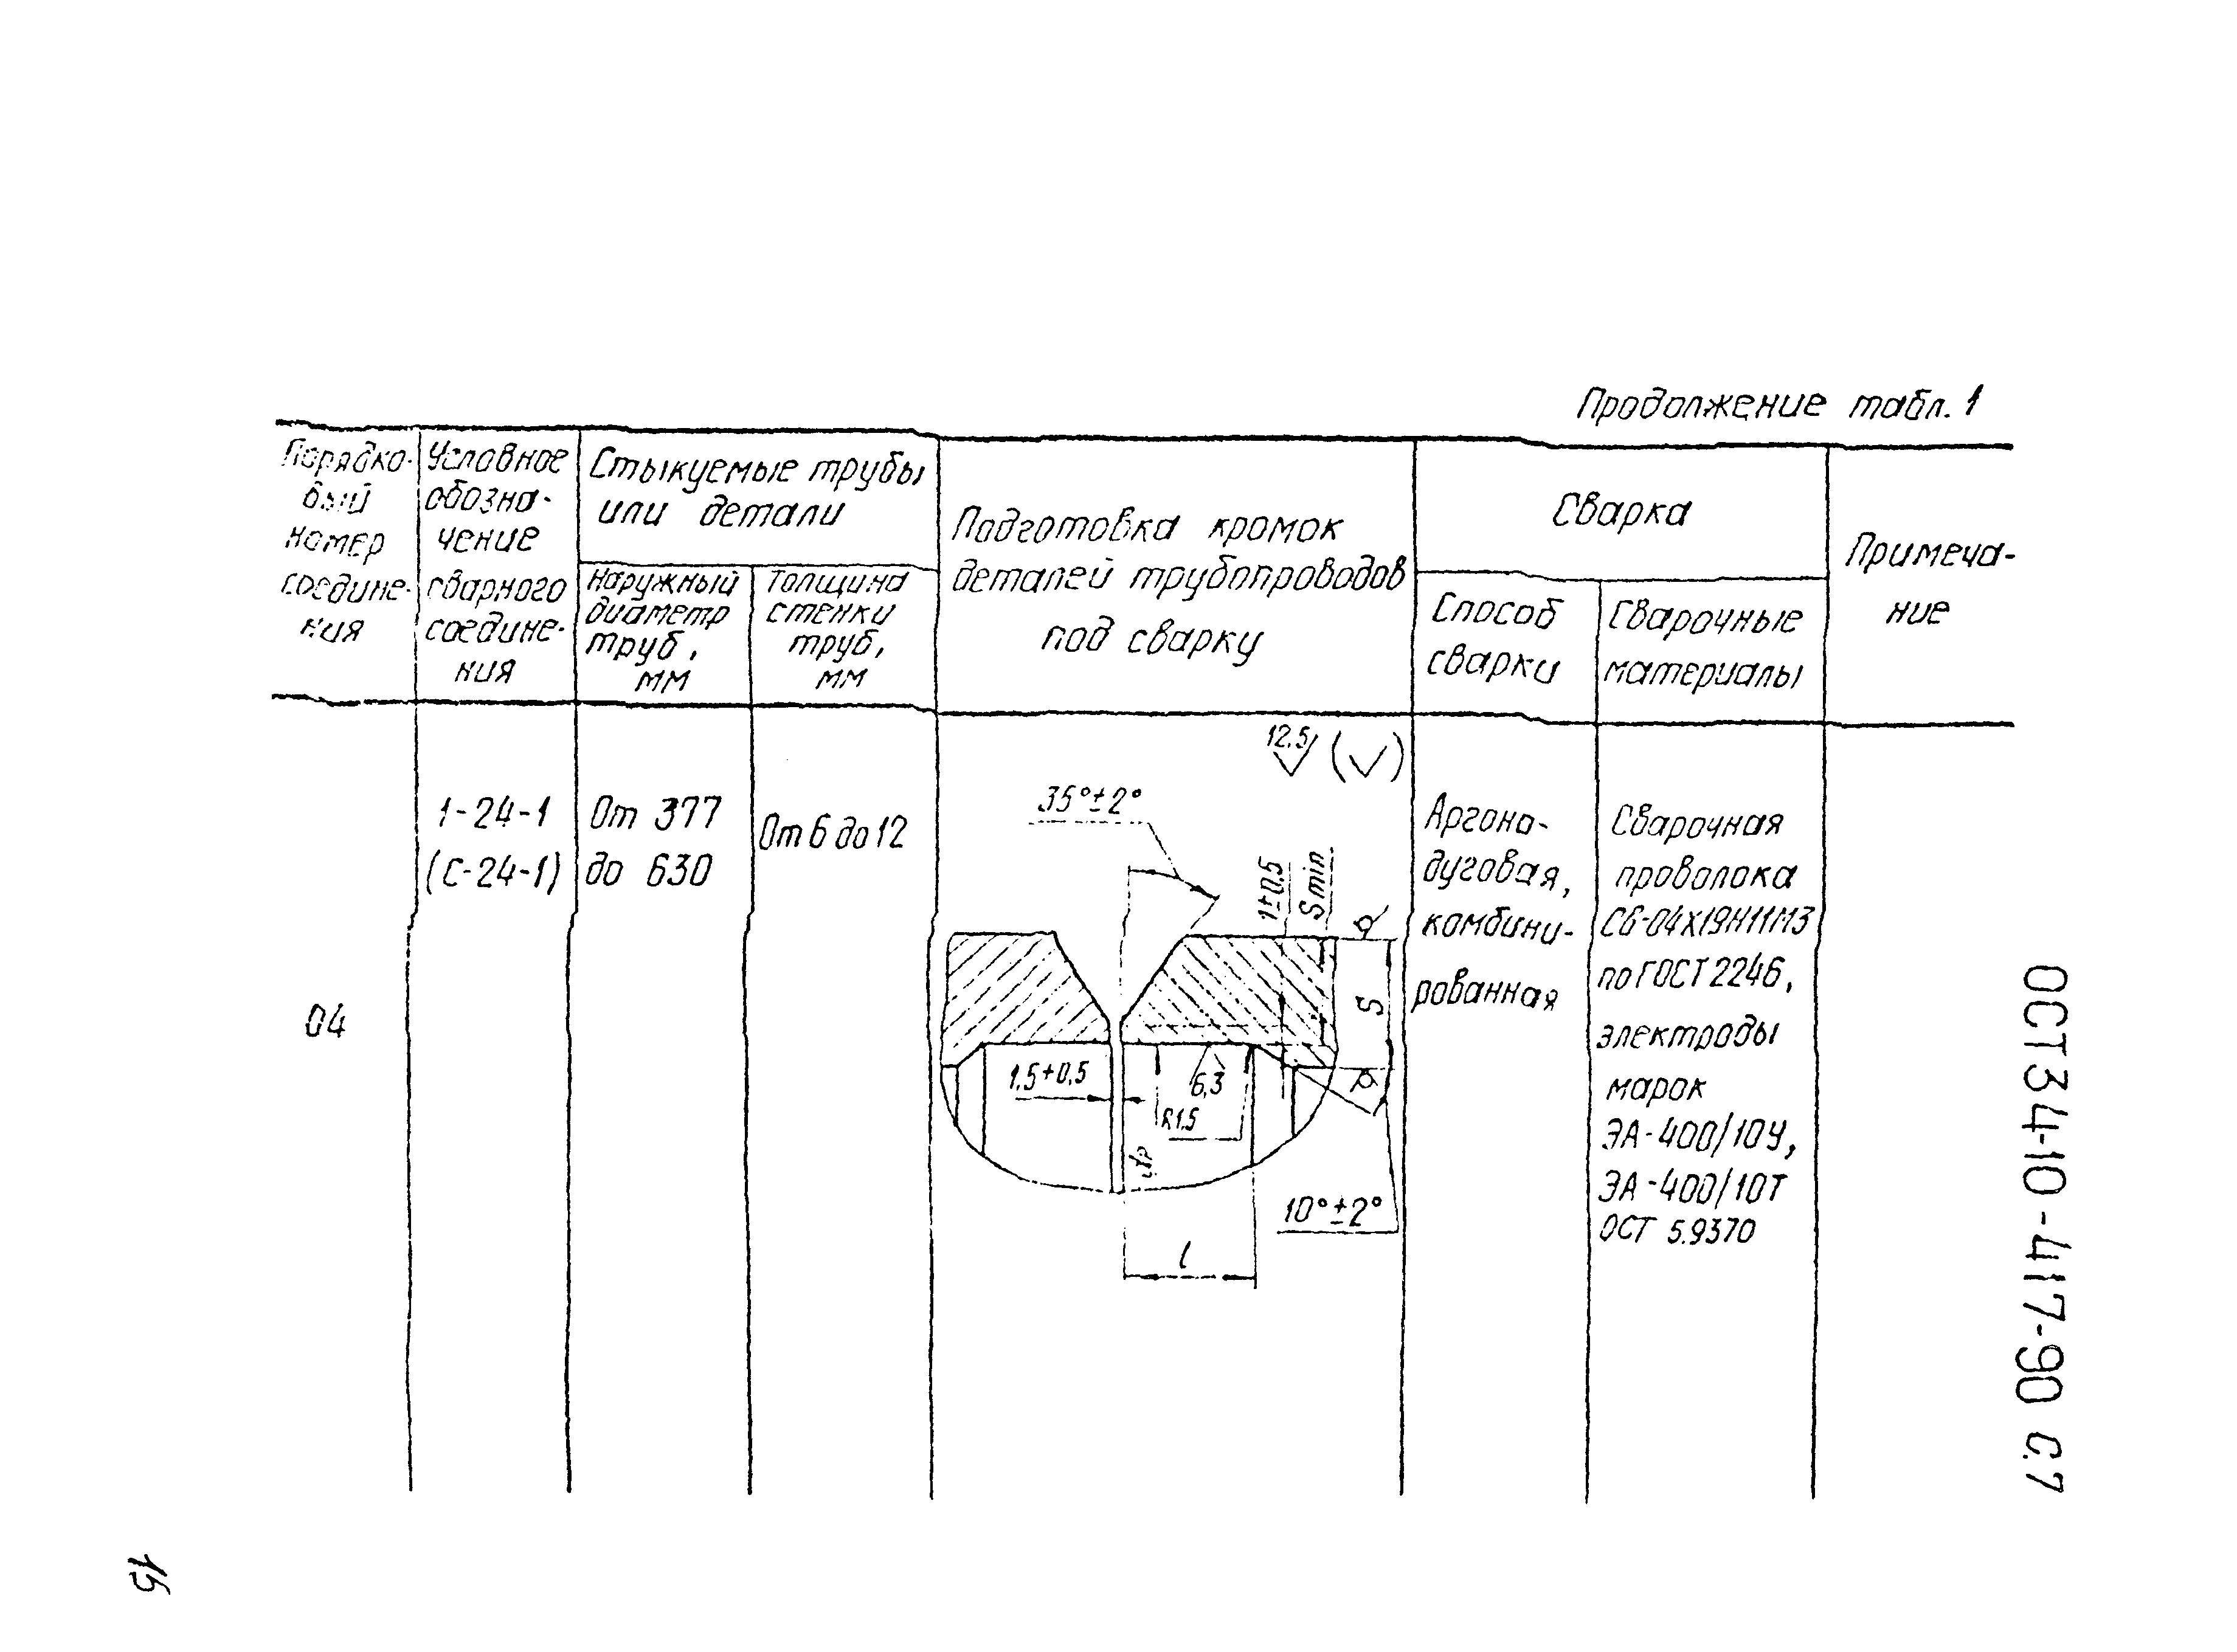 Продолжение табл. 1
Порядко-
вый
номер
соедине-
ния
Условное
обозна-
чение
сварного
соедине-
ния
Стыкуемые трубы
или детали
Наружный
диаметр
труб,
мм
Толщина
стенки
труб,
мм
Подготовка кромок
деталей трубопроводов
под сварку
Сварка
Способ
сварки
Сварочные
материалы
Примеча-
ние
04
1-24-1
(С-24-1)
От 377
до 630
От 6 до 12
12,5 (√)
35°±2°
1±0,5
S min
S
1,5+0,5
6,3
R1,5
dр
10°±2°
l
Аргоно-
дуговая,
комбини-
рованная
Сварочная
проволока
Св-04Х19Н11М3
по ГОСТ 2246,
электроды
марок
ЭА-400/10У,
ЭА-400/10Т
ОСТ 5.9370
ОСТ 34-10-417-90 С.7
15